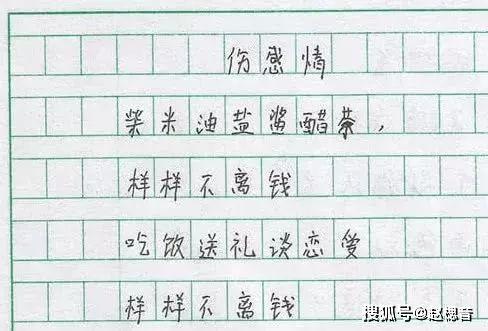 伤感情
柴米油盐酱醋茶,
样样不离钱
吃饭送礼谈恋爱
样样不离钱
搜狐号@赵想音